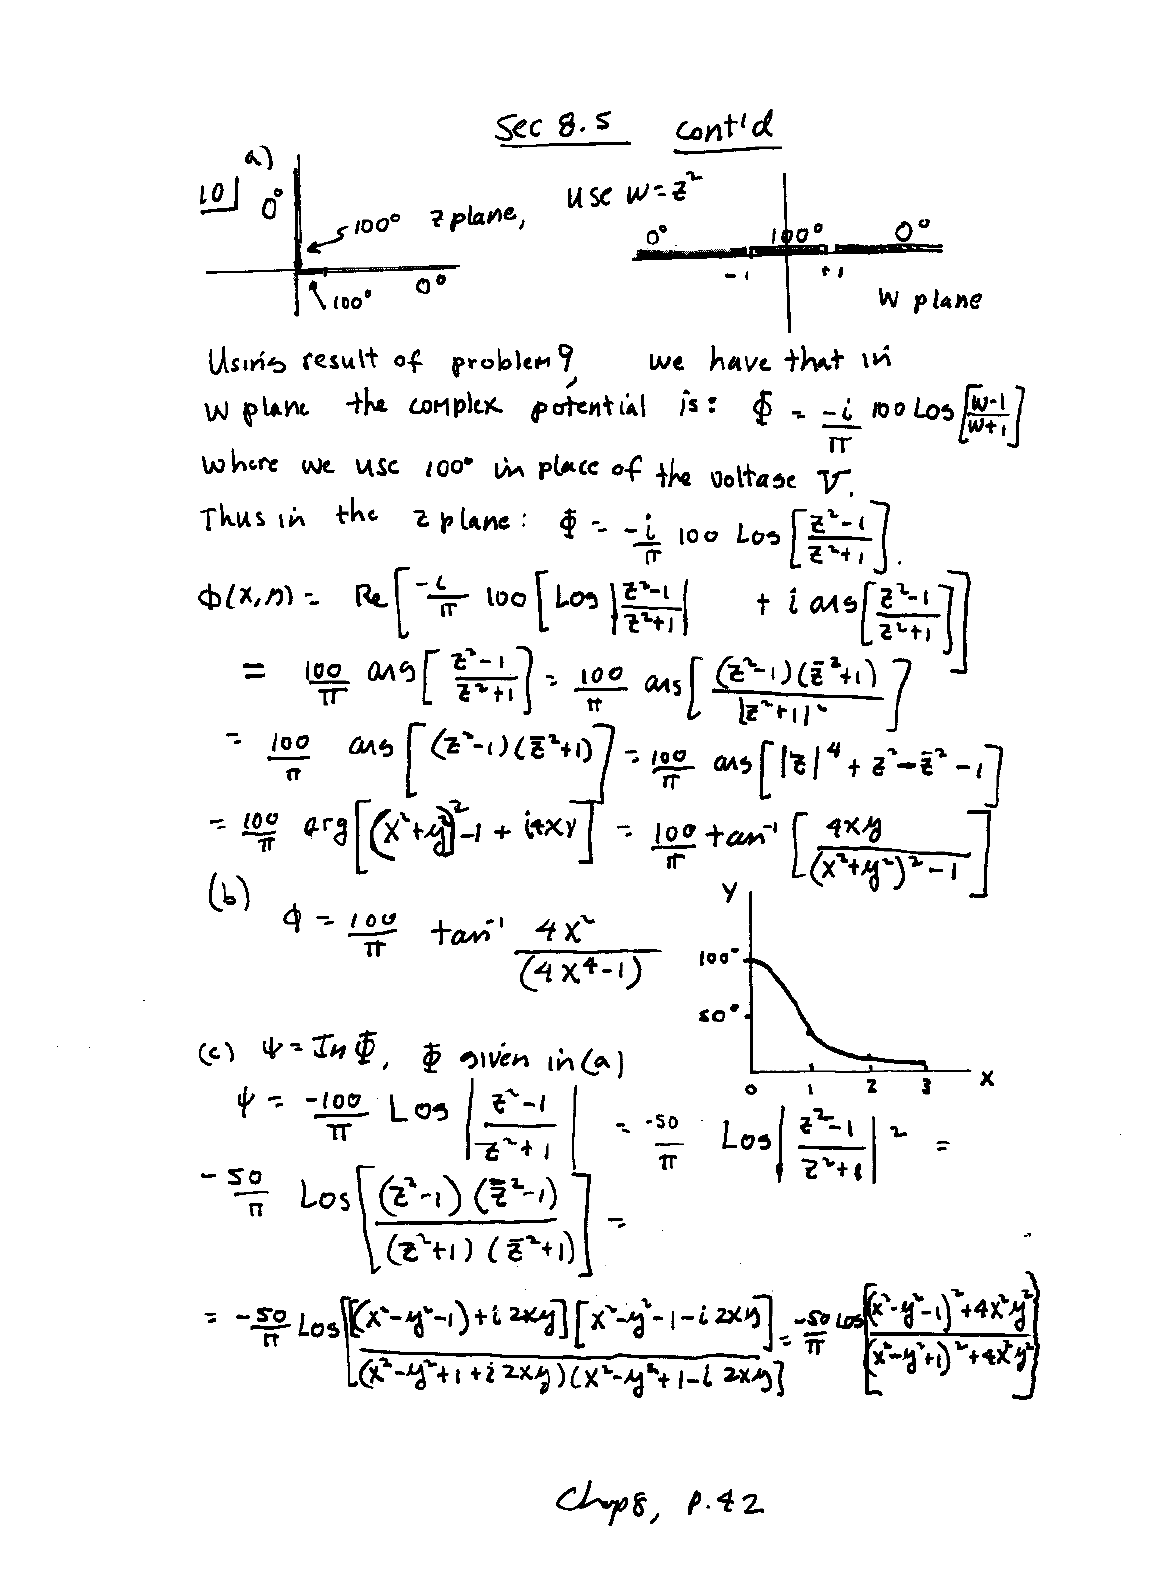 Sec 8.5 cont'd
10] a) 0° 100° z plane, 100° 0°
use w=z²
0° 100° 0° -1 +1 w plane
Using result of problem 9, we have that in
w plane the complex potential is: Φ = -i/π 100 Log [w-1/w+1]
Where we use 100° in place of the voltage V.
Thus in the z plane: Φ = -i/π 100 Log [z²-1/z²+1].
φ(x,y) = Re[-i/π 100 [Log |z²-1/z²+1| + i arg[z²-1/z²+1]]]
= 100/π arg[z²-1/z²+1] = 100/π arg[(z²-1)(z̄²+1)/|z²+1|²]
= 100/π arg[(z²-1)(z̄²+1)] = 100/π arg[|z|⁴ + z² - z̄² - 1]
= 100/π arg[(x²+y²)²-1 + i4xy] = 100/π tan⁻¹ [4xy/(x²+y²)²-1]
(b) φ = 100/π tan⁻¹ 4x²/(4x⁴-1)
Y 100° 50° 0 1 2 3 X
(c) ψ = Im Φ, Φ given in (a)
ψ = -100/π Log |z²-1/z²+1| = -50/π Log |z²-1/z²+1|² =
-50/π Log [(z²-1)(z̄²-1)/(z²+1)(z̄²+1)] =
= -50/π Log [[(x²-y²-1)+i2xy][x²-y²-1-i2xy]/(x²-y²+1+i2xy)(x²-y²+1-i2xy)] = -50/π Log [(x²-y²-1)²+4x²y²/(x²-y²+1)²+4x²y²]
Chap 8, p.42